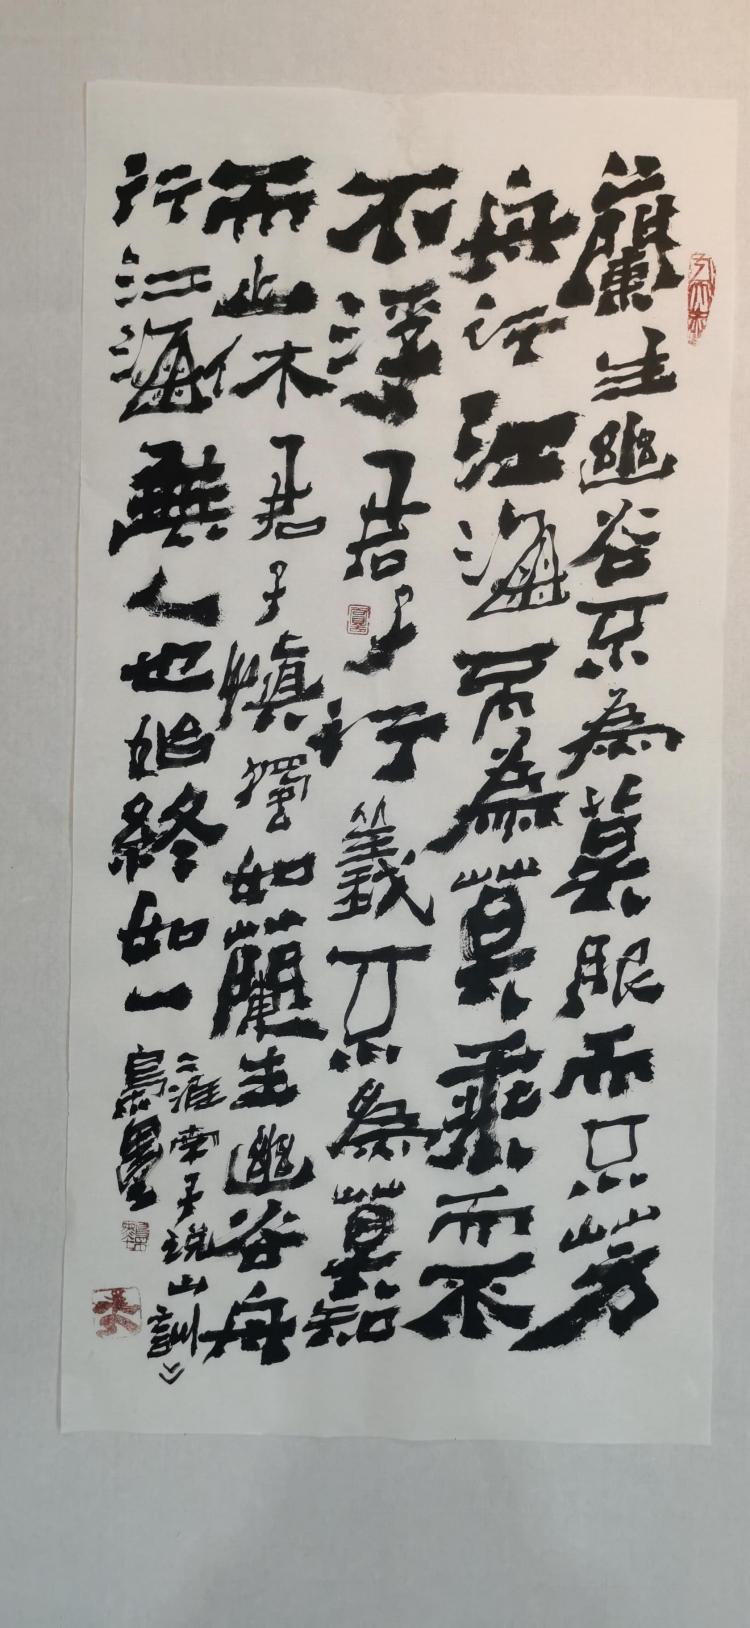 蘭生幽谷不為莫服而不芳
舟行江海不為莫乘而不
不浮君子行義不為莫知
而止休君子慎獨如蘭生幽谷舟
行江海無人也始終如一
淮南子說山訓》